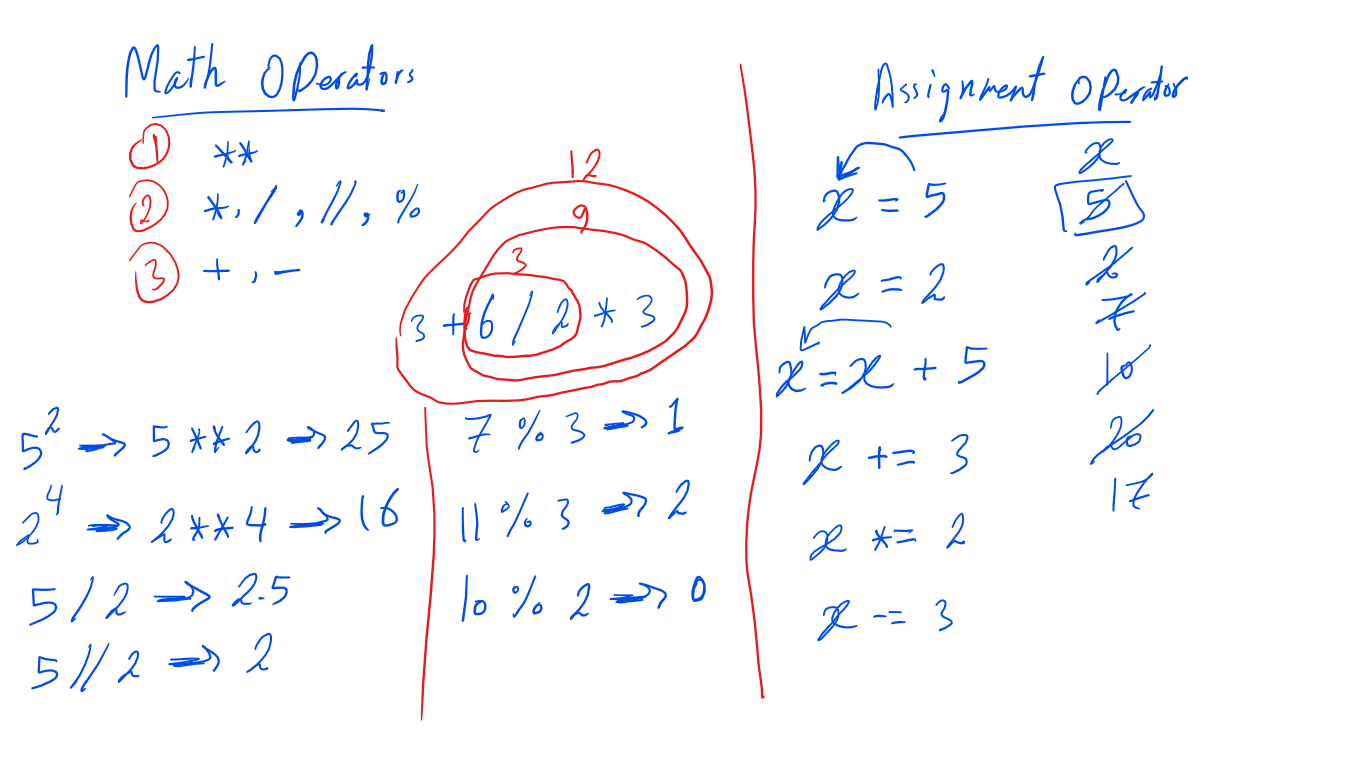 Math Operators
1 **
2 *, /, //, %
3 +, -
12
9
3
3 + 6 / 2 * 3
5² → 5 ** 2 → 25
2⁴ → 2 ** 4 → 16
5 / 2 → 2.5
5 // 2 → 2
7 % 3 → 1
11 % 3 → 2
10 % 2 → 0
Assignment Operator
x = 5
x = 2
x = x + 5
x += 3
x *= 2
x -= 3
x
5
2
7
10
20
17